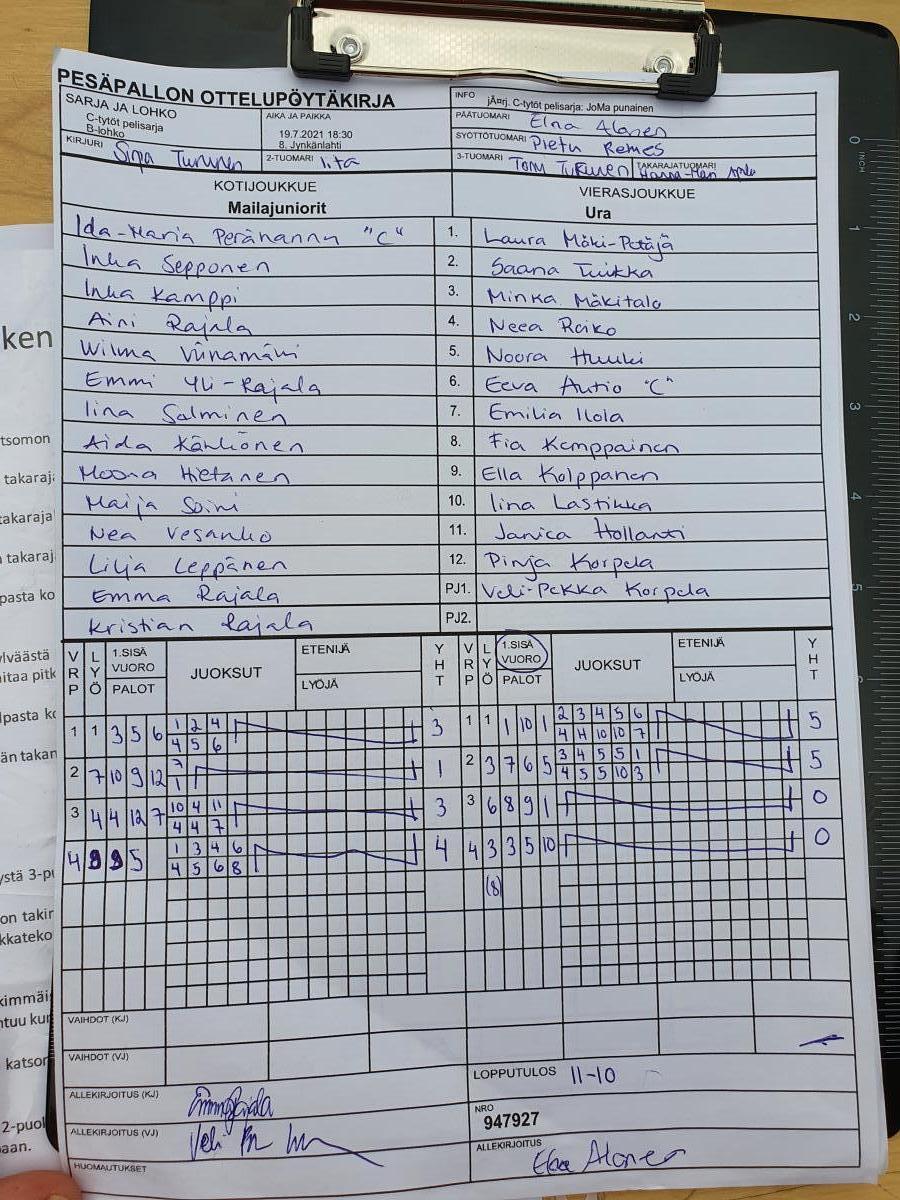 PESÄPALLON OTTELUPÖYTÄKIRJA
SARJA JA LOHKO
C-tytöt pelisarja
B-lohko
AIKA JA PAIKKA
19.7.2021 18:30
8. Jynkänlahti
KIRJURI Sirpa Turunen
2-TUOMARI
INFO jĂ¤rj. C-tytöt pelisarja: JoMa punainen
PÄÄTUOMARI Elna Alanen
SYÖTTÖTUOMARI Pietu Remes
3-TUOMARI Tomy Tukunen
TAKARAJATUOMARI
KOTIJOUKKUE
Mailajuniorit
VIERASJOUKKUE
Ura
Ida-Maria Perähannu "C" 1. Laura Mäki-Petäjä
Inka Sepponen 2. Saana Tuikka
Inka Kamppi 3. Minka Mäkitalo
Aini Rajala 4. Neea Raiko
Wilma Viinamäki 5. Noora Huuki
Emmi Yli-Rajala 6. Eeva Autio "C"
Iina Salminen 7. Emilia Ilola
Aida Känkönen 8. Fia Kemppainen
Moona Hietanen 9. Ella Kolppanen
Maija Soini 10. Iina Lastikka
Nea Vesanko 11. Janica Hollanti
Lilja Leppänen 12. Pinja Korpela
Emma Rajala PJ1. Veli-Pekka Korpela
Kristian Rajala PJ2.
VRP LYÖ 1.SISÄ VUORO PALOT JUOKSUT ETENIJÄ LYÖJÄ YHT VRP LYÖ 1.SISÄ VUORO PALOT JUOKSUT ETENIJÄ LYÖJÄ YHT
1 1 3 5 6 1 2 4 3 1 1 1 10 1 2 3 4 5 6 5
4 5 6 4 4 10 10 7
2 7 10 9 12 7 1 2 3 7 6 5 3 4 5 5 1 5
1 4 5 5 10 3
3 4 4 12 7 10 4 11 3 3 6 8 9 1 0
4 4 7
4 9 9 5 1 3 4 6 4 4 3 3 5 10 0
4 5 6 8
(8)
VAIHDOT (KJ)
VAIHDOT (VJ)
ALLEKIRJOITUS (KJ)
LOPPUTULOS 11-10
ALLEKIRJOITUS (VJ)
NRO
947927
HUOMAUTUKSET
ALLEKIRJOITUS Elna Alanen
ken
0
INCH
1
2
3
4
5